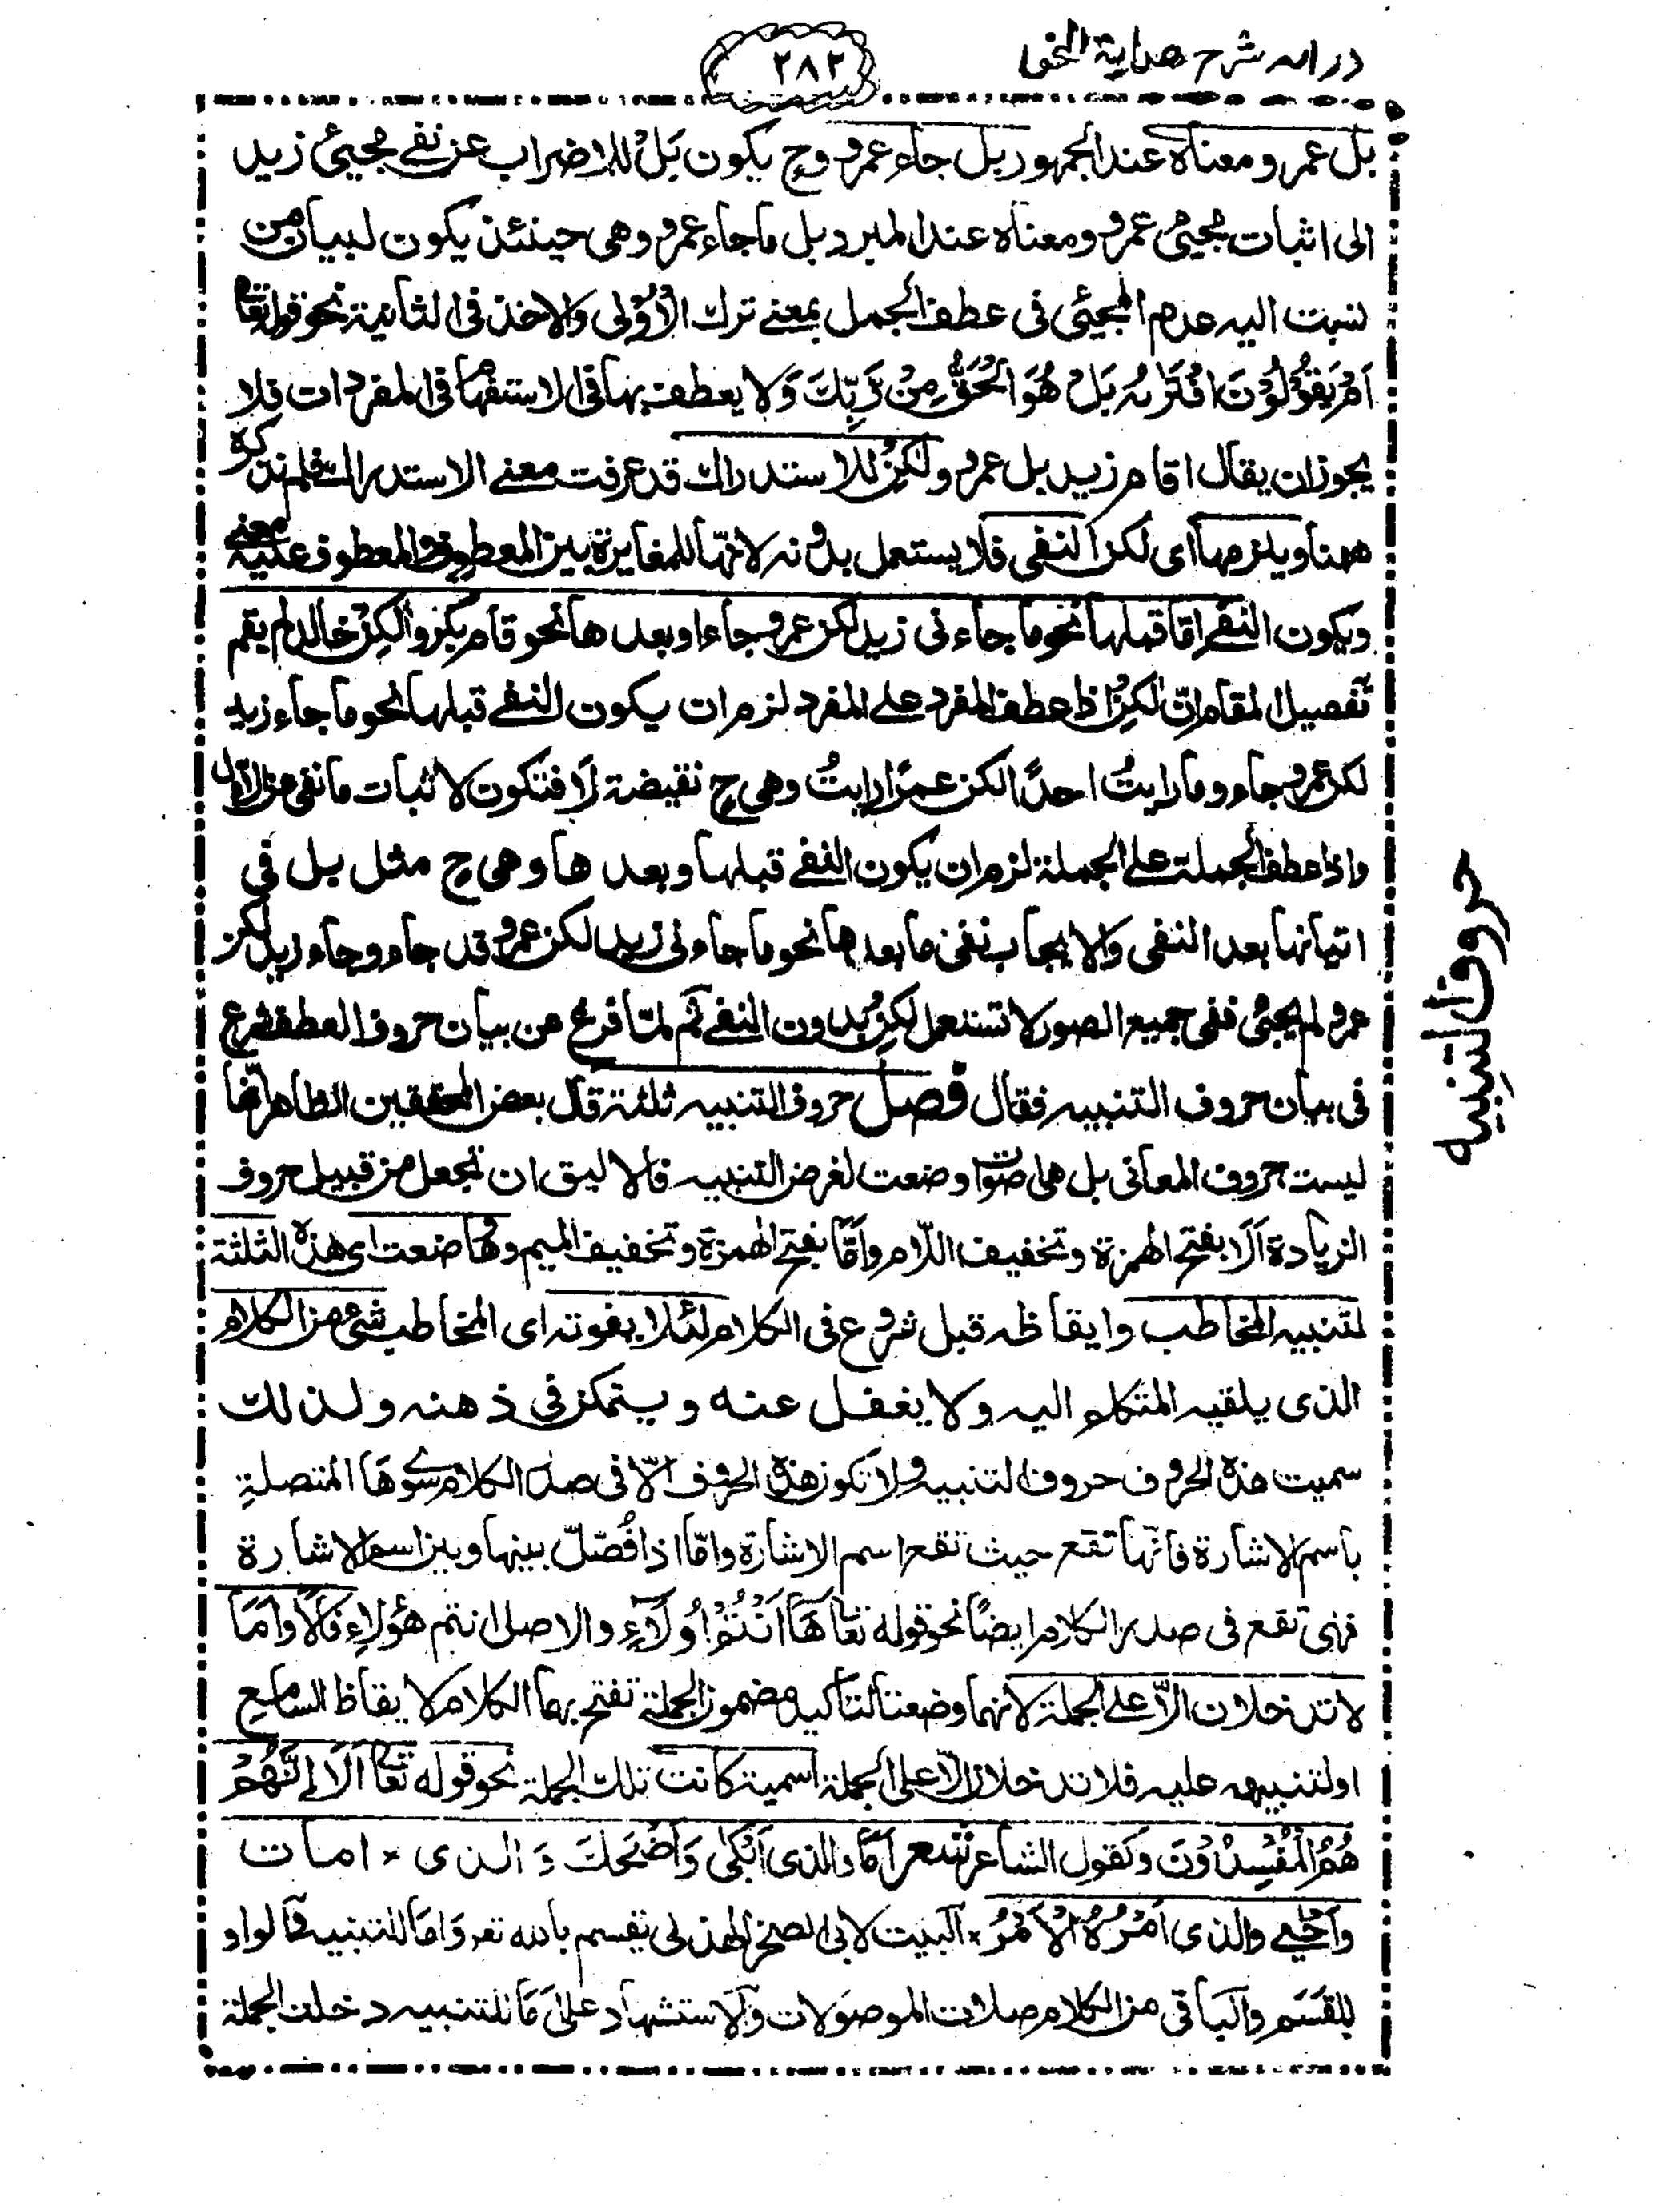 درایه شرح هدایة النحو
٢٨٢
بل عمرو ومعناه عند الجمهور بل جاء عمرو وح یکون بَلْ للاضراب عن نفی مجیئ زید
الی اثبات مجیئ عمرو ومعناه عند المبرد بل ما جاء عمرو وهی حینئذ یکون لبیان من
نسبت الیه عدم المجیئی فی عطف الجمل بمعنے ترك الْاُوْلٰی والاخذ فی الثانیة نحو قوله تعا
اَمْ یَقُوْلُوْنَ افْتَرٰىهُ بَلْ هُوَ الْحَقُّ مِنْ رَّبِّكَ وَلا یعطف بها فی الاستفهام فی المفردات فلا
یجوز ان یقال اقام زید بل عمرو ولٰکِنْ للاستدراك قد عرفت معنے الاستدراك فلم نذکره
ههنا ویلزمها ای لکن النفی فلا یستعمل بدونه لانّها للمغایرة بین المعطوف والمعطوف علیه معنے
ویکون النفے امّا قبلها نحو ما جاءنی زید لکن عمرو جاء او بعدها نحو قام بکر ولٰکِنْ خالد لم یقم
تفصیل المقام انّ لٰکِنْ اذا عطف المفرد علی المفرد لزم ان یکون النفے قبلها نحو ما جاء زید
لکن عمرو جاء وما رایتُ احدًا لکن عمرًا رایتُ وهی ح نقیضة لَا فتکون لاثبات ما نفی من الاول
واذا عطف الجملة علی الجملة لزم ان یکون النفے قبلها وبعدها وهی ح مثل بل فی
اتیانها بعد النفی والایجاب نفی ما بعدها نحو ما جاءنی زید لکن عمرو قد جاء وجاء زید لکن
عمرو لم یجئی ففی جمیع الصور لا تستعمل لکِنْ بدون النفے ثم لمّا فرغ من بیان حروف العطف شرع
فی بیان حروف التنبیه فقال فصل حروف التنبیه ثلثة قال بعض المحققین الظاهر انّها
لیست حروف المعانی بل هی اصوات وضعت لغرض التنبیه فالالیق ان تجعل من قبیل حروف
الزیادة اَلَا بفتح الهمزة وتخفیف اللّام واَمَا بفتح الهمزة وتخفیف المیم وهَا وضعت ای هذه الثلثة
لتنبیه المخاطب وایقاظه قبل شروع فی الکلام لئلا یفوته ای المخاطب شئ من الکلام
الذی یلقیه المتکلم الیه ولا یغفل عنه ویتمکن فی ذهنه ولذلك
سمیت هذه الحروف حروف التنبیه ولا تکون هذه الحروف الّا فی صدر الکلام سوے هَا المتصلةِ
باسم الاشارة فانّها تقع حیث تقع اسم الاشارة وامّا اذا فُصّلّ بینها وبین اسم الاشارة
فهی تقع فی صدر الکلام ایضًا نحو قوله تعا هَا اَنْتُمْ اُولَآءِ والاصل انتم هؤلاء فَاَلَا واَمَا
لا تدخلان الّا علی الجملة لانهما وضعتا لتاکید مضمون الجملة تفتح بهما الکلام لایقاظ السامع
او لتنبیهه علیه فلا تدخلان الّا علی الجملة اسمیة کانت تلك الجملة نحو قوله تعا اَلَا اِنَّهُمْ
هُمُ الْمُفْسِدُوْنَ وکقول الشاعر شعر اَمَا والذی اَبْکٰی وَاَضْحَكَ وَ الذی × امات
واَحْیٰے والذی اَمْرُهُ الْاَمْرُ × اَلبیت لابی الصخر الهذلی یقسم بالله تعر واَمَا للتنبیه فالواو
للقَسَمِ والباقی من الکلام صلات الموصولات وَالاستشهاد علی اَمَا للتنبیه دخلت الجملة
حروف التنبیه